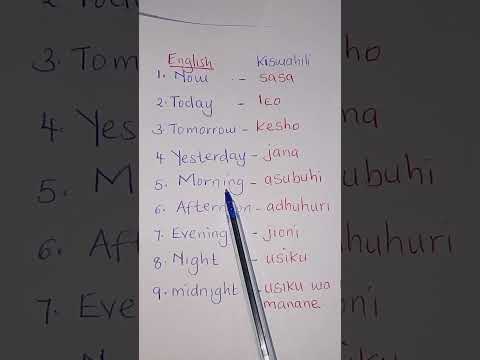 English Kiswahili
1. Now - sasa
2. Today - leo
3. Tomorrow - kesho
4 Yesterday - jana
5. Morning - asubuhi
6. Afternoon - adhuhuri
7. Evening - jioni
8. Night - usiku
9. midnight - usiku wa
manane